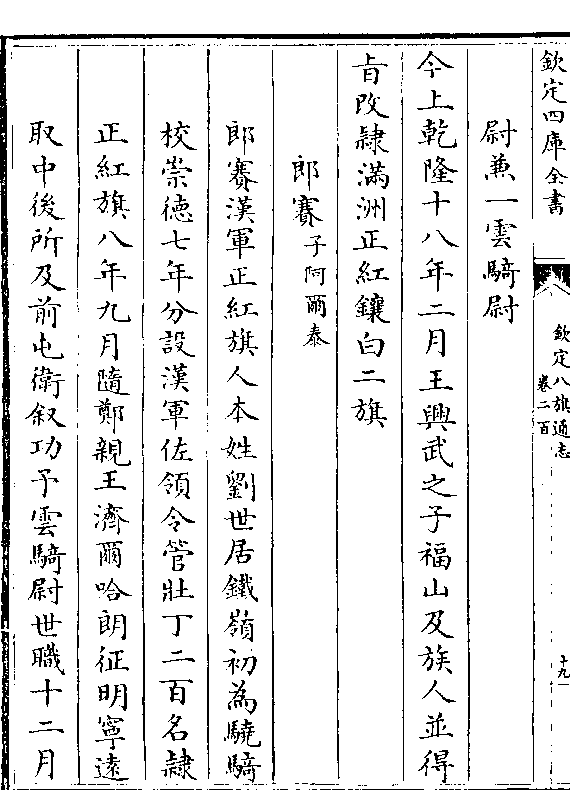 欽定四庫全書
欽定八旗通志
卷二百
十九
尉兼一雲騎尉
今上乾隆十八年二月王興武之子福山及族人並得
旨改隸滿洲正紅鑲白二旗
郎賽子阿爾泰
郎賽漢軍正紅旗人本姓劉世居鐵嶺初為驍騎
校崇德七年分設漢軍佐領令管壯丁二百名隸
正紅旗八年九月隨鄭親王濟爾哈朗征明寧遠
取中後所及前屯衛叙功予雲騎尉世職十二月